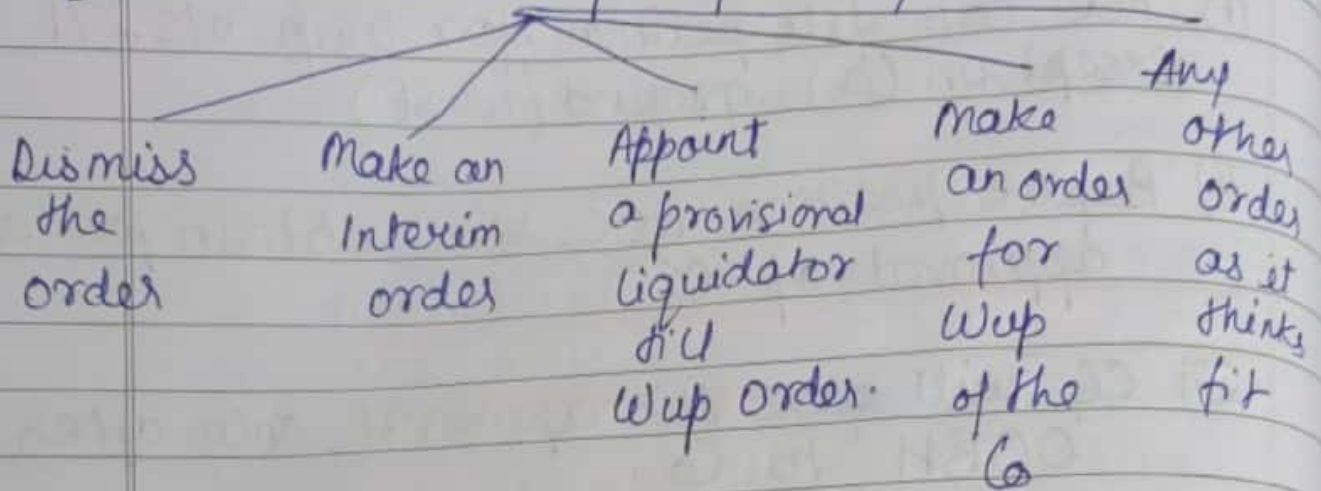 Dismiss
the
order
Make an
Interim
order
Appoint
a provisional
liquidator
till
Wup order.
Make
an order
for
Wup
of the
Co
Any
other
order
as it
thinks
fit